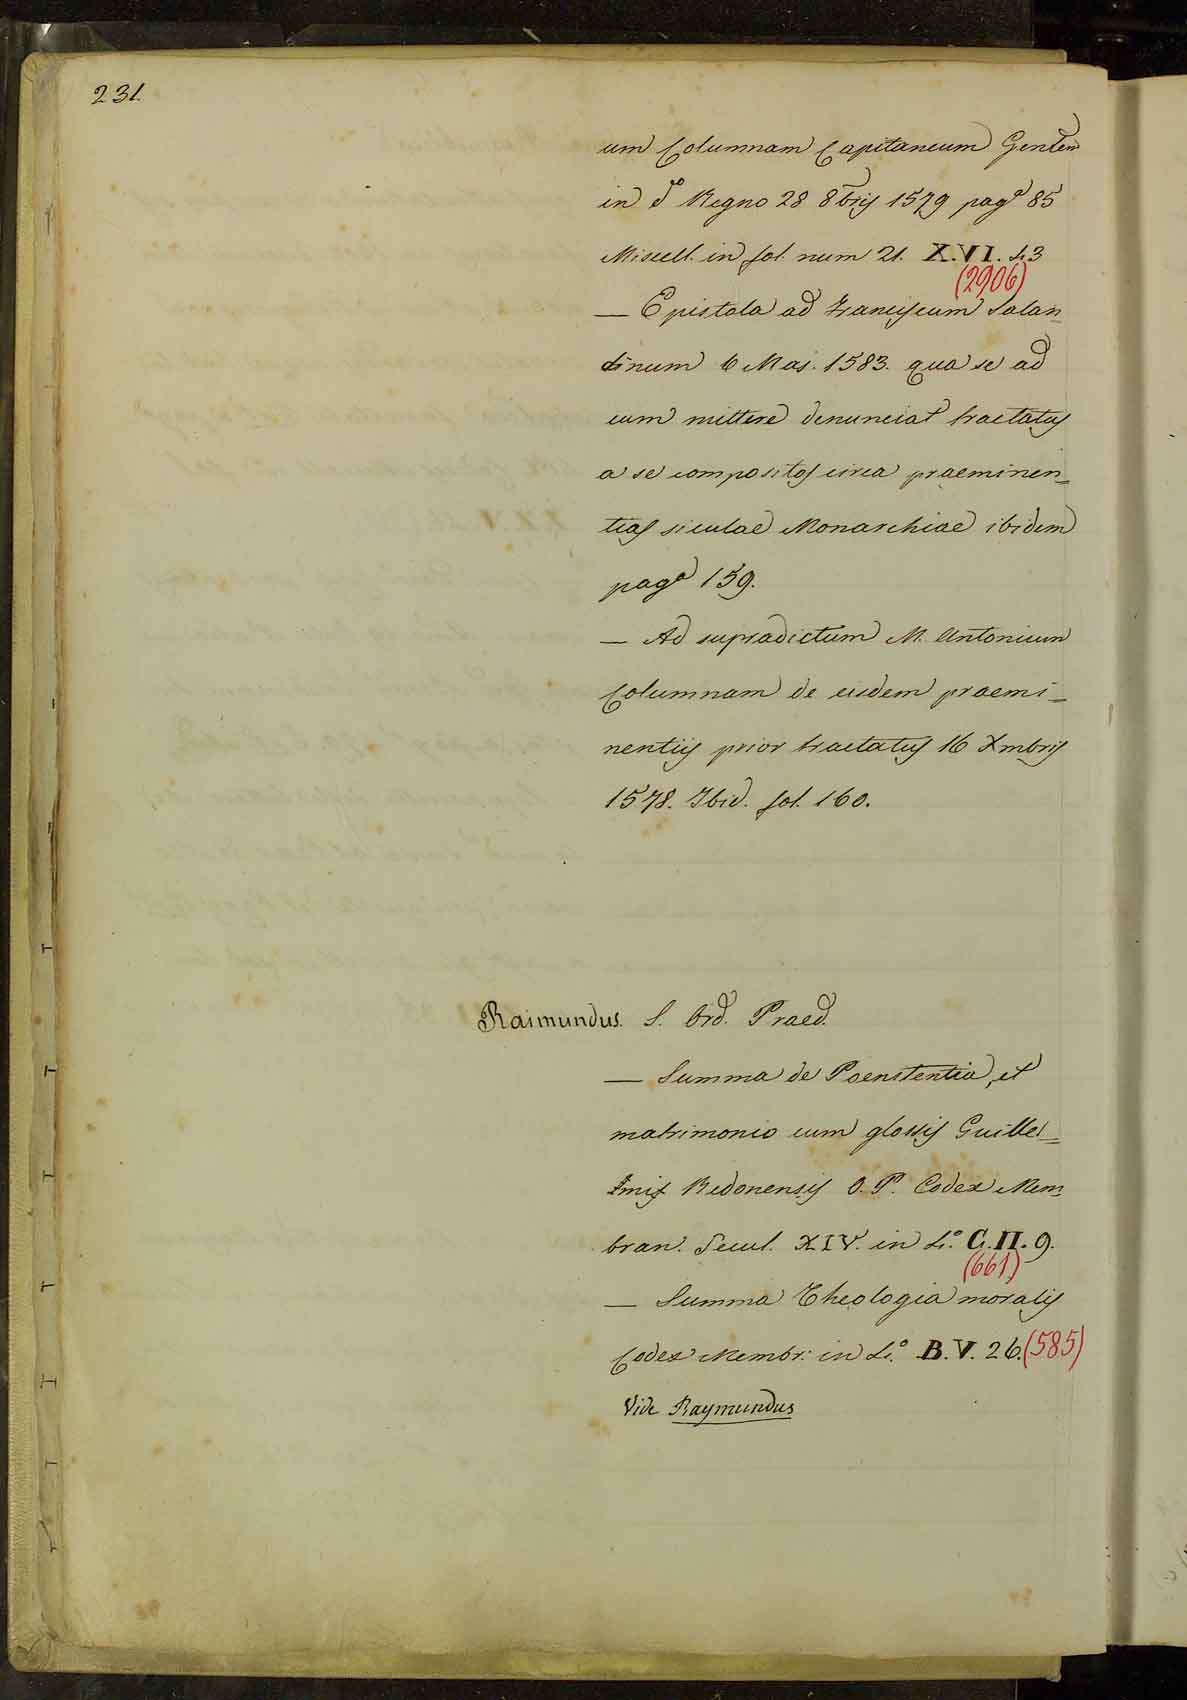 231.
um Columnam Capitaneum Gentem
in d.º Regno 28 8bris 1579 pag.ª 85
Miscell. in fol. num 21. X.VI. 43
(2906)
— Epistola ad Franciscum Salan=
dinum 6 Mas. 1583. qua se ad
eum mittere denunciat tractatus
a se compositos circa praeminen=
tias siculae Monarchiae ibidem
pag.ª 159.
— Ad supradictum M. Antonium
Columnam de eisdem praemi=
nentiis prior tractatus 16 Xmbris
1578. Ibid. fol. 160.
Raimundus. S. Ord. Praed.
— Summa de Poenitentia, et
matrimonio cum glossis Guillel=
mi Redonensis O.P. Codex Mem
bran. Secul. XIV. in 4.º C.II.9.
(661)
— Summa Theologia moralis
Codex Membr: in 4.º B.V.26. (585)
Vide Raymundus